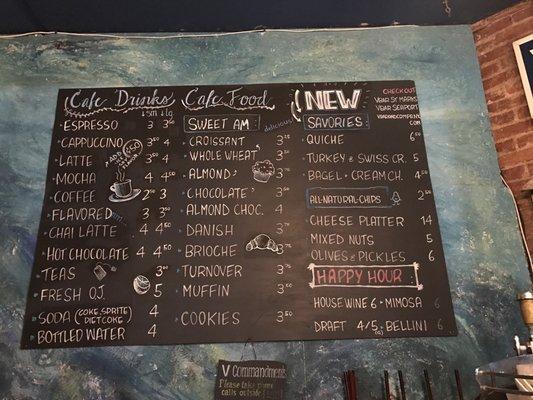 Cafe Drinks
↓sm ↓lg
ESPRESSO 3 3⁵⁰
CAPPUCCINO 3⁵⁰ 4
LATTE 3⁵⁰ 4
MOCHA 4 4⁵⁰
COFFEE 2⁵⁰ 3
FLAVORED 3 3⁵⁰
CHAI LATTE 4 4⁵⁰
HOT CHOCOLATE 4 4⁵⁰
TEAS 3⁵⁰
FRESH O.J. 5
SODA (COKE, SPRITE 4
DIET COKE)
BOTTLED WATER 4
Cafe Food
SWEET AM delicious!
CROISSANT 3⁵⁰
WHOLE WHEAT 3⁷⁵
ALMOND 4
CHOCOLATE 3⁵⁰
ALMOND CHOC. 4
DANISH 3⁷⁵
BRIOCHE 3⁷⁵
TURNOVER 3⁷⁵
MUFFIN 3⁵⁰
COOKIES 3⁵⁰
NEW
CHECK OUT
VBAR ST. MARKS
VBAR SEAPORT
VBARANDCOMPANY.
COM
SAVORIES
QUICHE 6⁵⁰
TURKEY & SWISS CR. 5
BAGEL - CREAM CH. 4
ALL-NATURAL-CHIPS 2⁵⁰
CHEESE PLATTER 14
MIXED NUTS 5
OLIVES & PICKLES 6
HAPPY HOUR
HOUSE WINE 6 - MIMOSA 6
DRAFT 4/5 - BELLINI 6
V Commandments
Please take phone
calls outside!